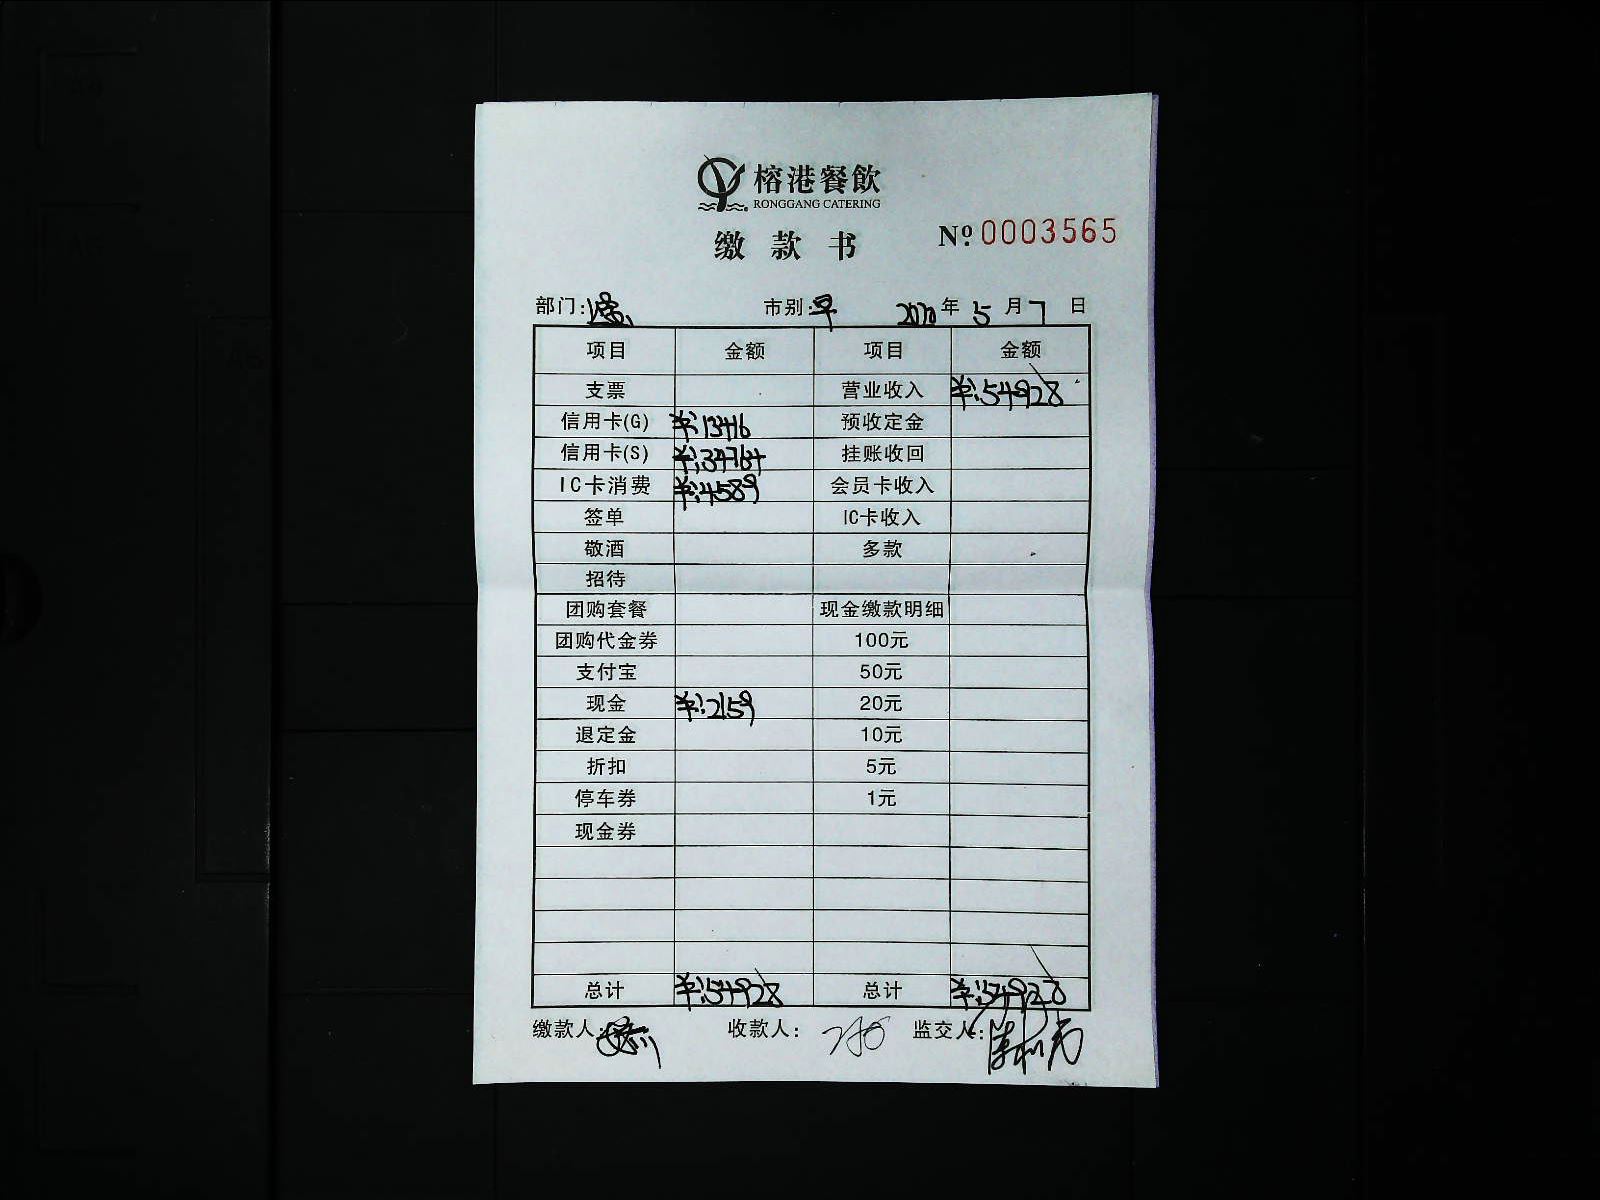 榕港餐飲
RONGGANG CATERING
缴款书
№ 0003565
部门: 市别: 早 2020年 5月 7日
项目 金额 项目 金额
支票 营业收入 ¥:54928
信用卡(G) ¥:13416 预收定金
信用卡(S) ¥:34764 挂账收回
IC卡消费 ¥:4589 会员卡收入
签单 IC卡收入
敬酒 多款
招待
团购套餐 现金缴款明细
团购代金券 100元
支付宝 50元
现金 ¥:2159 20元
退定金 10元
折扣 5元
停车券 1元
现金券
总计 ¥:54928 总计 ¥:54928
缴款人: 收款人: 监交人: